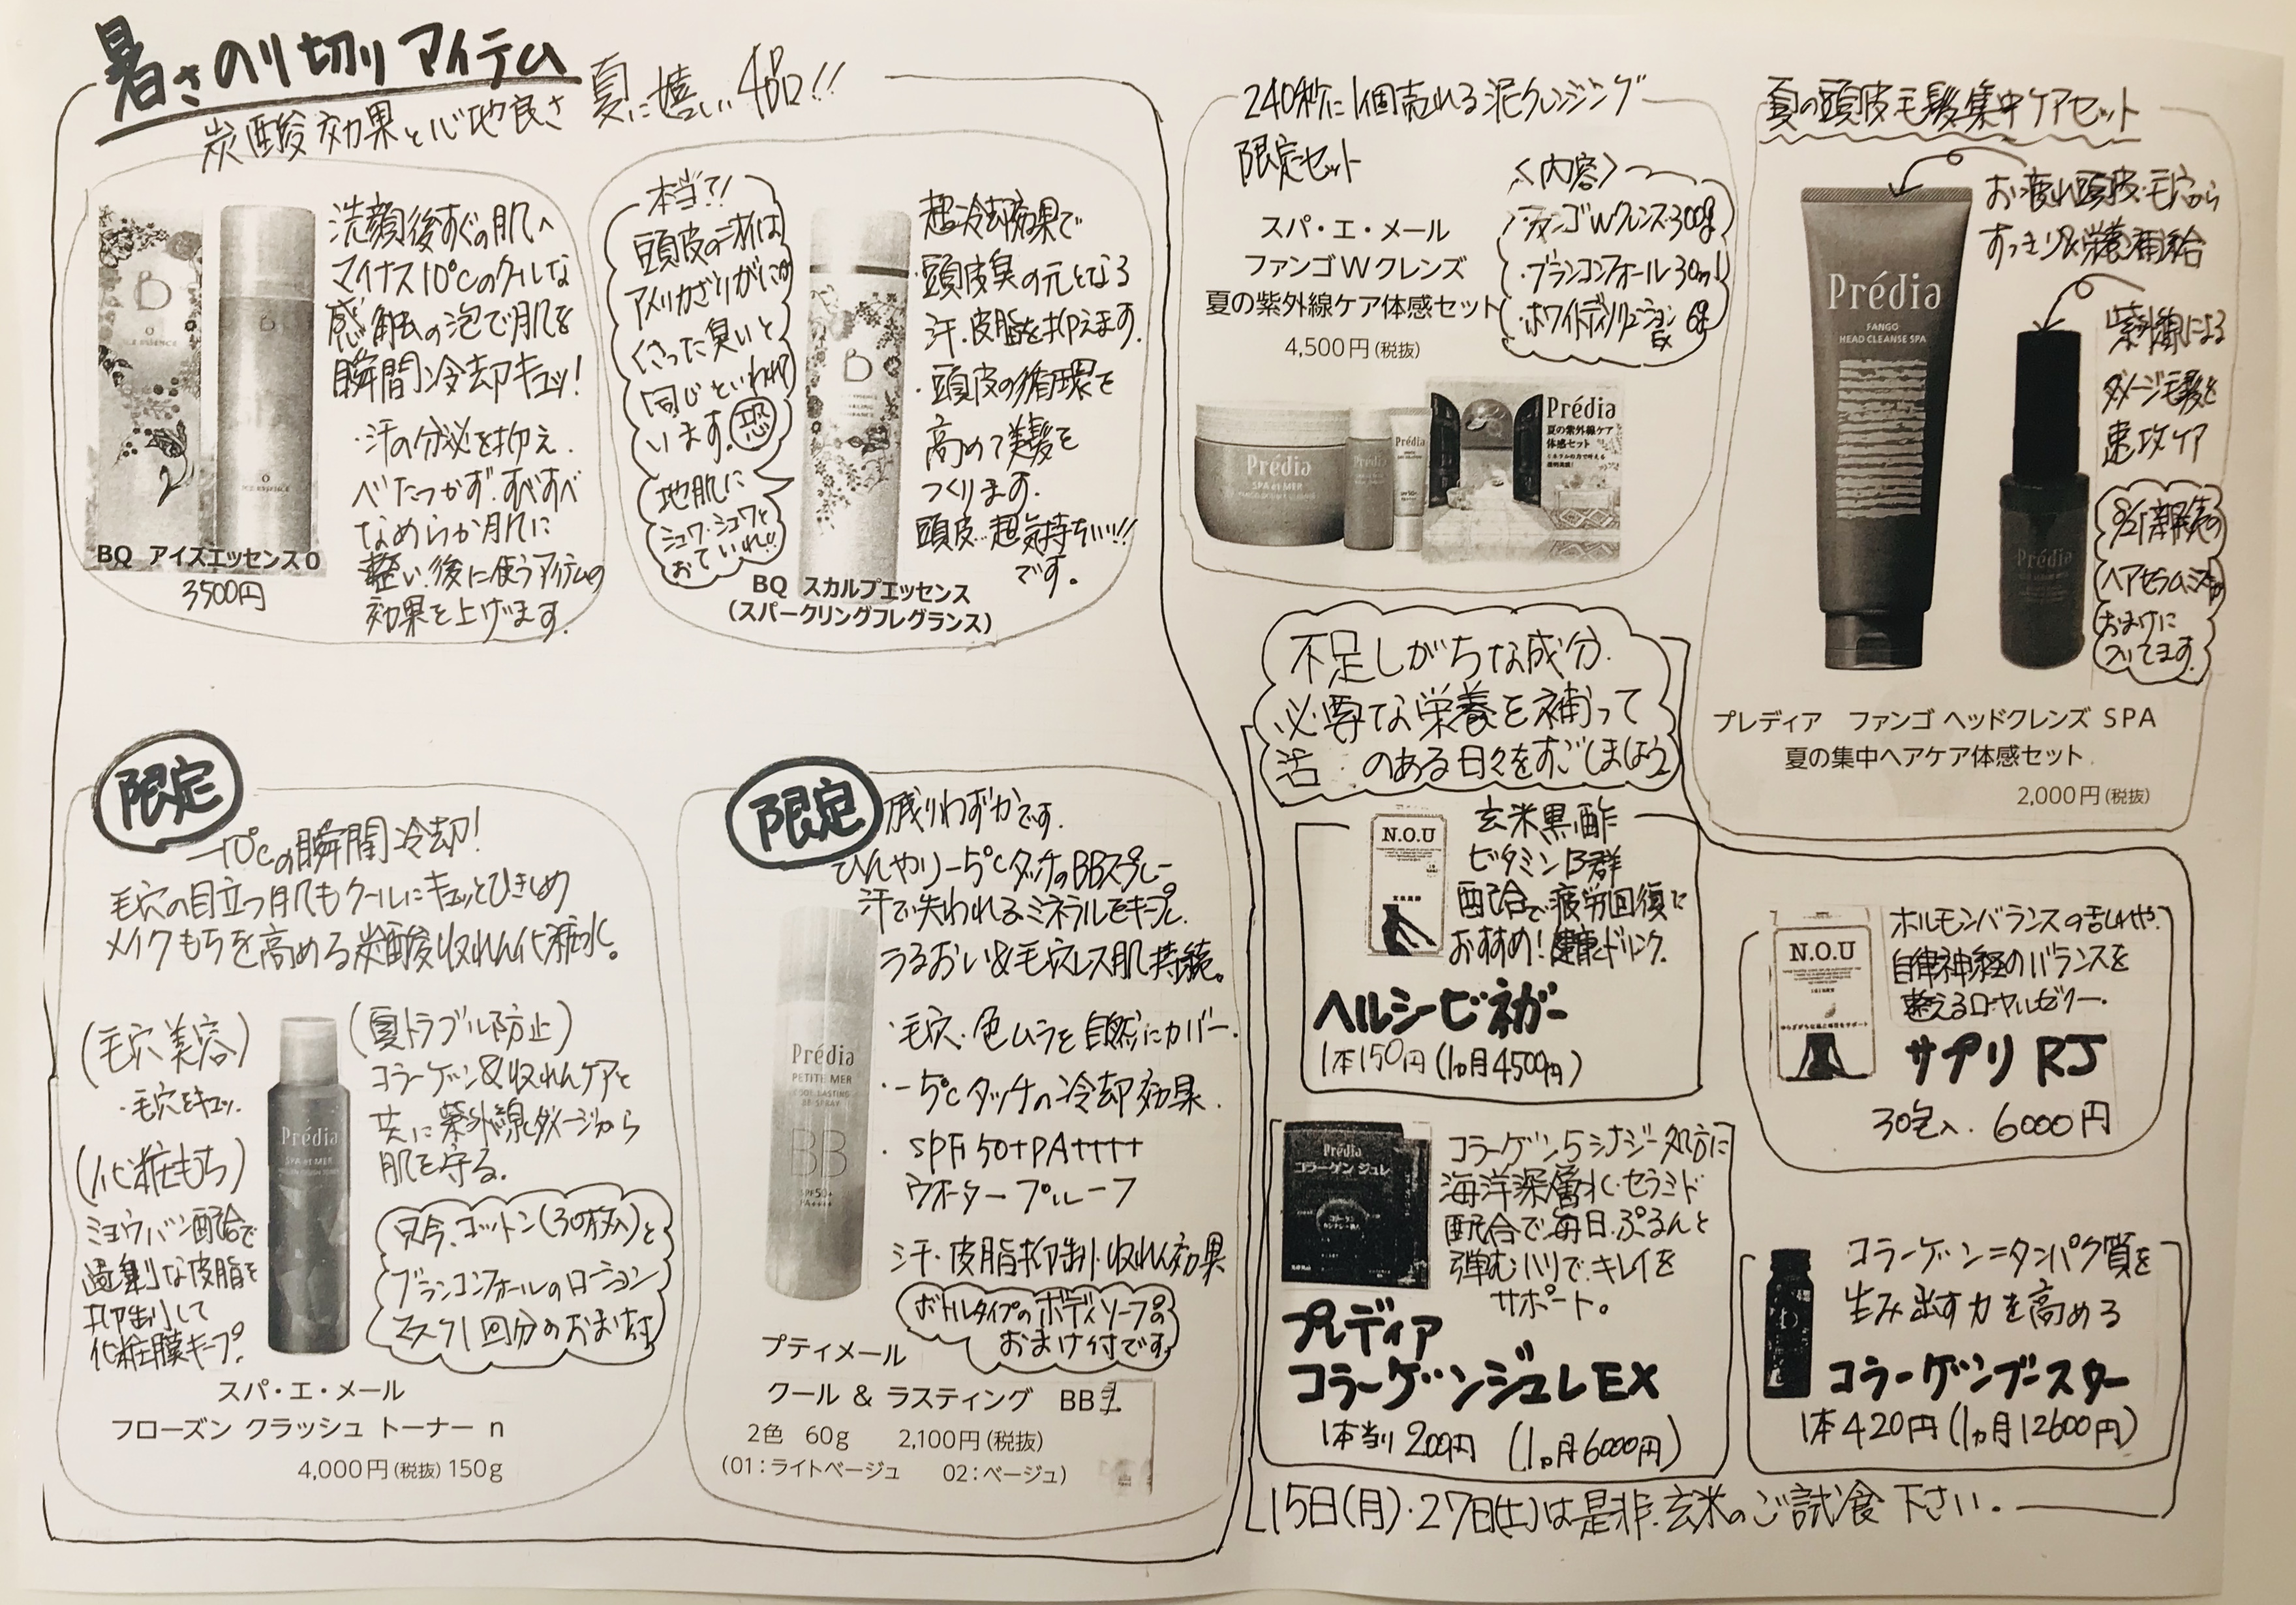 暑さのり切りアイテム
炭酸効果と心地良さ 夏に嬉しい4品!!
洗顔後すぐの肌へ
マイナス10℃のクールな
感触の泡で肌を
瞬間冷却キュッ!
・汗の分泌を抑え、
べたつかず、すべすべ
なめらか肌に
整い、後に使うアイテムの
効果を上げます。
BQ アイスエッセンス0
3500円
本当?!
頭皮の汗は
アメリカざりがにの
くさった臭いと
同じといわれて
います。恐
地肌に
シュワ・シュワと
おていれ!!
超冷却効果で
・頭皮臭の元となる
汗、皮脂を抑えます。
・頭皮の循環を
高めて美髪を
つくります。
頭皮…超気持ちいい!!
です。
BQ スカルプエッセンス
(スパークリングフレグランス)
限定
-10℃の瞬間冷却!
毛穴の目立つ肌もクールにキュッとひきしめ
メイクもちを高める炭酸収れん化粧水。
(毛穴美容)
・毛穴をキュッ。
(化粧もち)
ミョウバン配合で
過剰な皮脂を
抑制して
化粧膜キープ。
Prédia
SPA et MER
(夏トラブル防止)
コラーゲン&収れんケアと
共に紫外線ダメージから
肌を守る。
只今、コットン(30枚入)と
ブランコンフォールのローション
マスク1回分のおまけ付
スパ・エ・メール
フローズン クラッシュ トーナー n
4,000円(税抜) 150g
限定 残りわずかです。
ひんやり-5℃タッチのBBスプレー
汗で失われるミネラルをキープし、
うるおい&毛穴レス肌持続。
・毛穴・色ムラを自然にカバー。
・-5℃タッチの冷却効果。
・SPF50+PA++++
ウオータープルーフ
汗・皮脂抑制・収れん効果
ボトルタイプのボディソープの
おまけ付です。
Prédia
PETIT MER
BB
SPF50+
PA++++
プティメール
クール & ラスティング BB
2色 60g 2,100円(税抜)
(01:ライトベージュ 02:ベージュ)
240秒に1個売れる泥クレンジング
限定セット
スパ・エ・メール
ファンゴWクレンズ
夏の紫外線ケア体感セット
4,500円(税抜)
<内容>
・ファンゴWクレンズ300g
・ブランコンフォール30ml
・ホワイトディソリューションEX 6g
Prédia
SPA et MER
Prédia
Prédia
Prédia
夏の紫外線ケア
体感セット
夏の頭皮毛髪集中ケアセット
お疲れ頭皮・毛穴から
すっきり&栄養補給
紫外線による
ダメージ毛髪を
速攻ケア
9/21新発売の
ヘアセラムミストが
おまけに
入ってます。
Prédia
FANGO
HEAD CLEANSE SPA
Prédia
プレディア ファンゴ ヘッドクレンズ SPA
夏の集中ヘアケア体感セット
2,000円(税抜)
不足しがちな成分、
必要な栄養を補って
活 のある日々をすごしましょう
N.O.U
玄米黒酢
玄米黒酢
ビタミンB群
配合で疲労回復に
おすすめ!健康ドリンク。
ヘルシービネガー
1本150円(1ヵ月4500円)
N.O.U
ホルモンバランスの乱れや、
自律神経のバランスを
整えるローヤルゼリー。
サプリ RJ
30包入 6000円
Prédia
コラーゲン ジュレ
コラーゲン5シナジー処方に
海洋深層水・セラミド
配合で毎日、ぷるんと
弾むハリで、キレイを
サポート。
プレディア
コラーゲンジュレEX
1本当り 200円 (1ヵ月6000円)
コラーゲン=タンパク質を
生み出す力を高める
コラーゲンブースター
1本420円(1ヵ月12600円)
15日(月)・27日(土)は是非、玄米のご試食下さい。